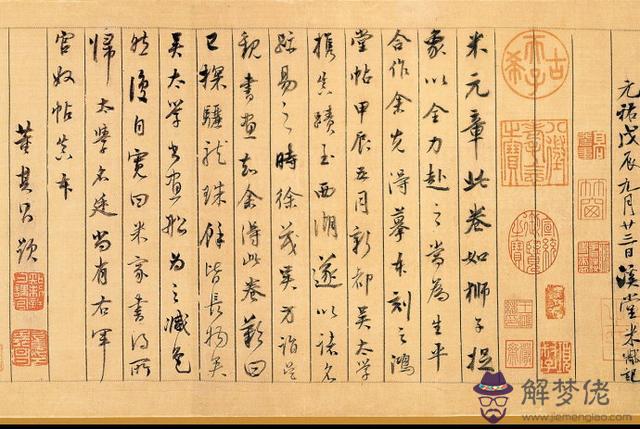 元祐戊辰九月廿三日溪堂米黻記
古希天子
宣統御覽之寶
米元章此卷如獅子捉
象以全力赴之當為生平
合作余先得摹本刻之鴻
堂帖甲辰五月新都吳太学
携真蹟至西湖遂以諸名
跡易之時徐茂吳方詣吳
觀書畫知余得此卷歎曰
已探驪龍珠餘皆長物矣
吳太学書画船為之減色
然復自寬曰米家書得所
歸太學名廷尚有右軍
官奴帖真本
董其昌題
解梦佬
www.jiemenglao.com